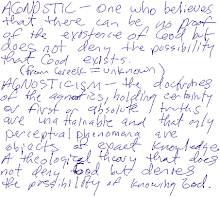 AGNOSTIC - one who believes
that there can be no proof
of the existence of God but
does not deny the possibility
that God exists.
(from Greek = unknown)
AGNOSTICISM - the doctrines
of the agnostics, holding certainty
or first or absolute truths
are unattainable and that only
perceptual phenomena are
objects of exact knowledge.
A theological theory that does
not deny God but denies
the possibility of knowing God.